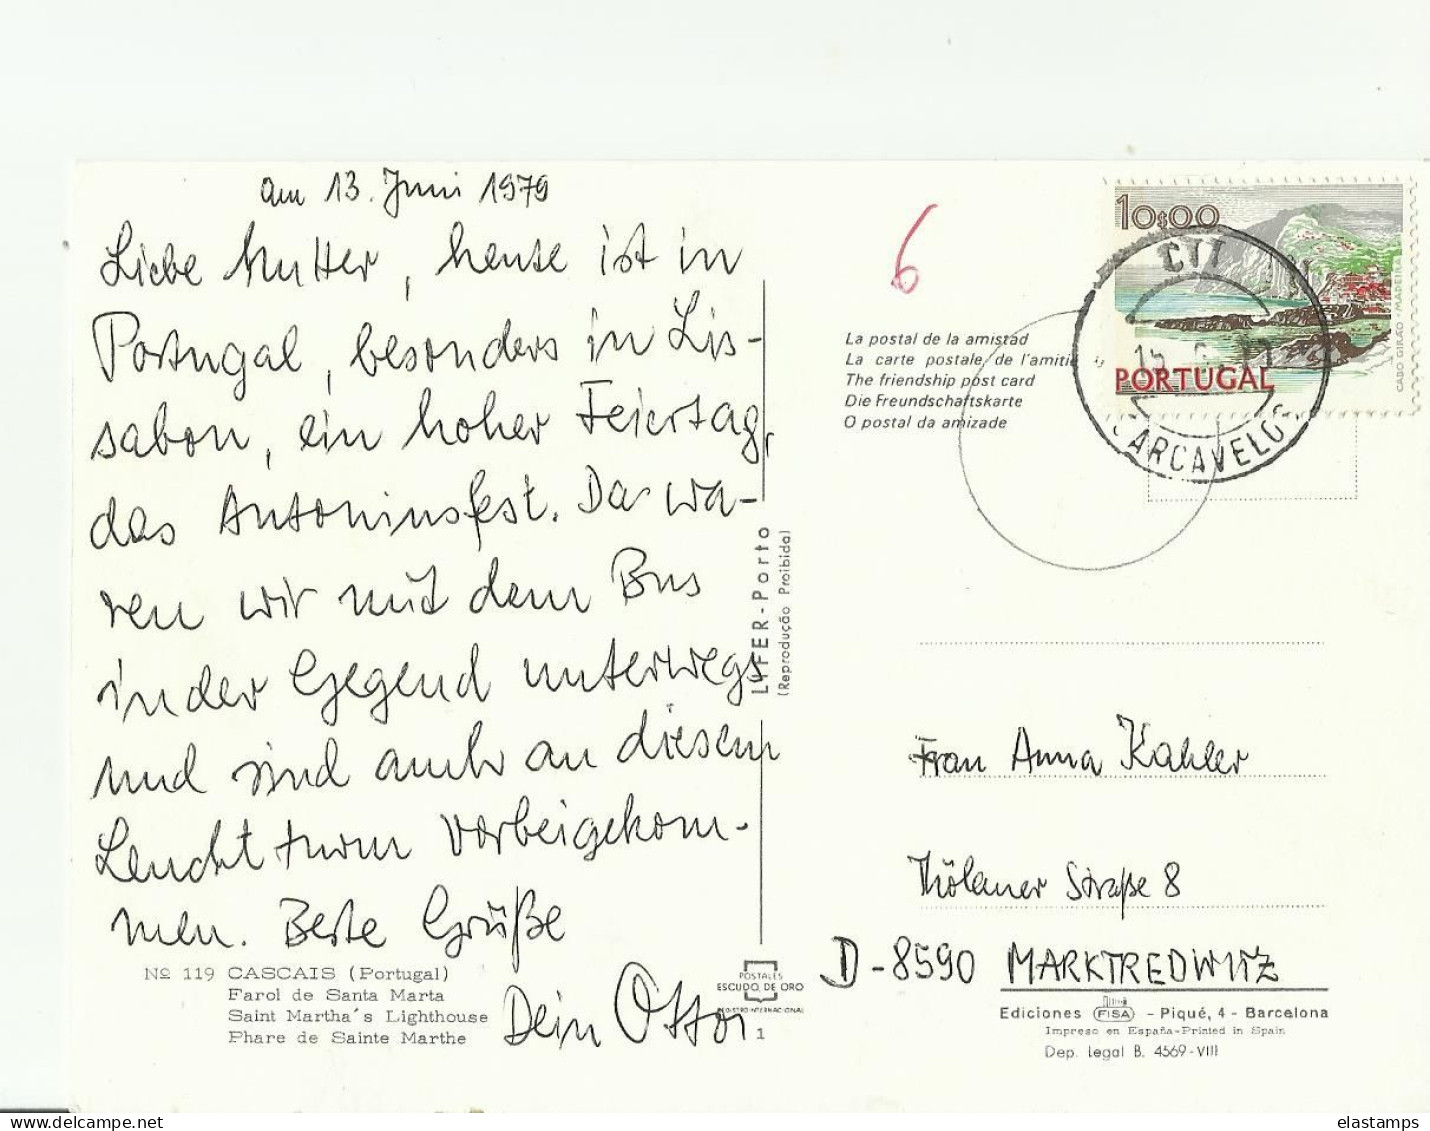 am 13. Juni 1979
Liebe Mutter, heute ist in
Portugal, besonders in Lis-
sabon, ein hoher Feiertag,
das Antoniusfest. Da wa-
ren wir mit dem Bus
in der Gegend unterwegs
und sind auch an diesem
Leuchtturm vorbeigekom-
men. Beste Grüße
Dein Otto
Nº 119 CASCAIS (Portugal)
Farol de Santa Marta
Saint Martha´s Lighthouse
Phare de Sainte Marthe
LIFER - Porto
(Reprodução Proibida)
POSTALES
ESCUDO DE ORO
REGISTRO INTERNACIONAL
1
6
La postal de la amistad
La carte postale de l'amitié
The friendship post card
Die Freundschaftskarte
O postal da amizade
10$00
PORTUGAL
CABO GIRÃO
CARCAVELOS
Frau Anna Kahler
Thölauer Straße 8
D-8590 MARKTREDWITZ
Ediciones FISA - Piqué, 4 - Barcelona
Impreso en España-Printed in Spain
Dep. legal B. 4569-VIII
elastamps